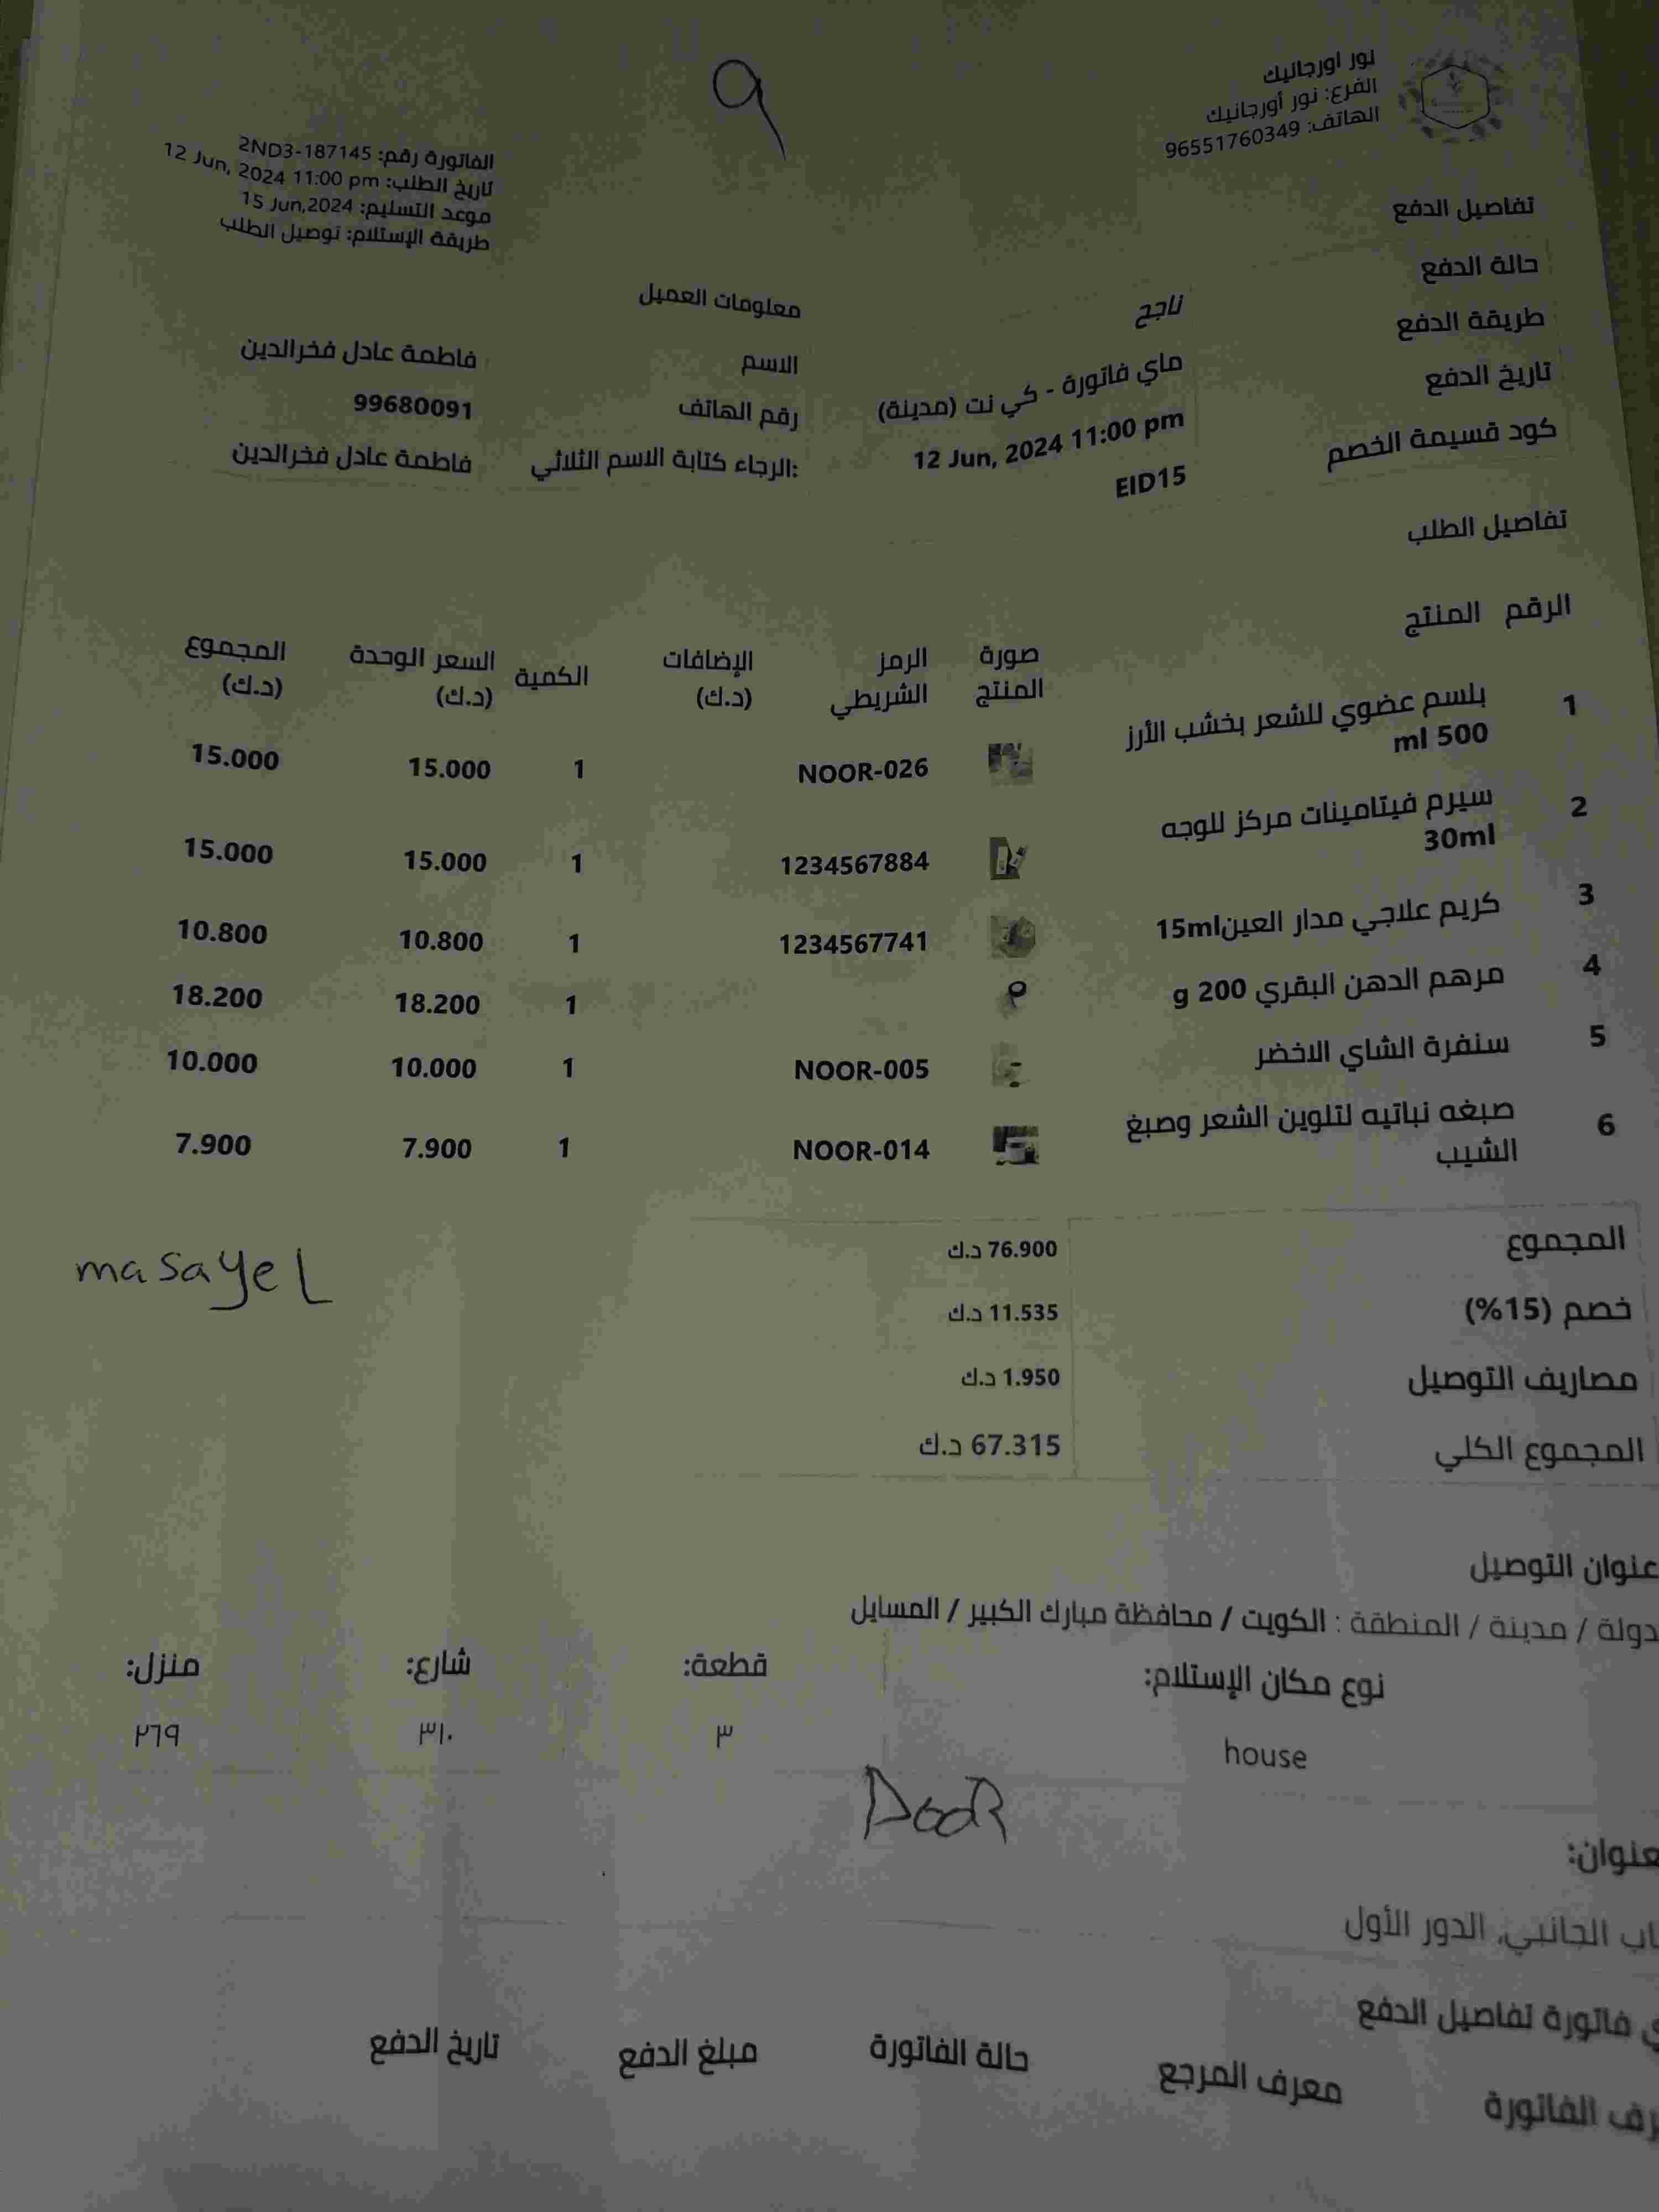 نور اورجانيك
الفرع: نور أورجانيك
الهاتف: 96551760349
9
الفاتورة رقم: 2ND3-187145
تاريخ الطلب: 12 Jun, 2024 11:00 pm
موعد التسليم: 15 Jun,2024
طريقة الإستلام: توصيل الطلب
تفاصيل الدفع
حالة الدفع ناجح
طريقة الدفع ماي فاتورة - كي نت (مدينة)
تاريخ الدفع 12 Jun, 2024 11:00 pm
كود قسيمة الخصم EID15
معلومات العميل
الاسم فاطمة عادل فخرالدين
رقم الهاتف 99680091
الرجاء كتابة الاسم الثلاثي: فاطمة عادل فخرالدين
تفاصيل الطلب
الرقم المنتج صورة المنتج الرمز الشريطي الإضافات (د.ك) الكمية السعر الوحدة (د.ك) المجموع (د.ك)
1 بلسم عضوي للشعر بخشب الأرز NOOR-026 1 15.000 15.000
500 ml
2 سيرم فيتامينات مركز للوجه 1234567884 1 15.000 15.000
30ml
3 كريم علاجي مدار العين15ml 1234567741 1 10.800 10.800
4 مرهم الدهن البقري 200 g 1 18.200 18.200
5 سنفرة الشاي الاخضر NOOR-005 1 10.000 10.000
6 صبغه نباتيه لتلوين الشعر وصبغ NOOR-014 1 7.900 7.900
الشيب
المجموع 76.900 د.ك
خصم (15%) 11.535 د.ك
مصاريف التوصيل 1.950 د.ك
المجموع الكلي 67.315 د.ك
masayel
عنوان التوصيل
دولة / مدينة / المنطقة : الكويت / محافظة مبارك الكبير / المسايل
نوع مكان الإستلام: قطعة: شارع: منزل:
house ٣ ٣١٠ ٢٦٩
DooR
عنوان:
الجانبي, الدور الأول
فاتورة تفاصيل الدفع
الفاتورة معرف المرجع حالة الفاتورة مبلغ الدفع تاريخ الدفع